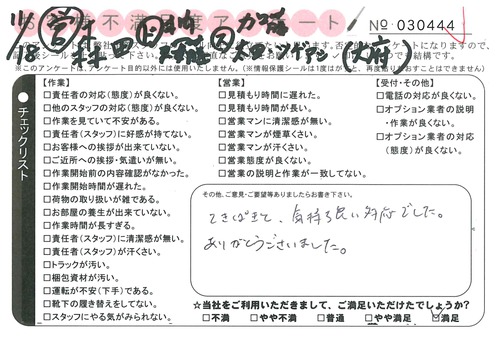 お客様不満足度アンケート
No 030444
11/18
村田
※このアンケートは、アンケート目的以外には使用いたしません。(※情報保護シールは1度はがすと、再度貼りなおすことはできません)
●チェックリスト
【作業】
□責任者の対応(態度)が良くない。
□他のスタッフの対応(態度)が良くない。
□作業を見ていて不安がある。
□責任者(スタッフ)に好感が持てない。
□お客様への挨拶が出来ていない。
□ご近所への挨拶・気遣いが無い。
□作業開始前の内容確認がなかった。
□作業開始時間が遅れた。
□荷物の取り扱いが雑である。
□お部屋の養生が出来ていない。
□作業時間が長すぎる。
□責任者(スタッフ)に清潔感が無い。
□責任者(スタッフ)が汗くさい。
□トラックが汚い。
□梱包資材が汚い。
□運転が不安(下手)である。
□靴下の履き替えをしてない。
□スタッフにやる気がみられない。
【営業】
□見積もり時間に遅れた。
□見積もり時間が長い。
□営業マンに清潔感が無い。
□営業マンが煙草くさい。
□営業マンが汗くさい。
□営業態度が良くない。
□営業の説明と作業が一致してない。
【受付・その他】
□電話の対応が良くない。
□オプション業者の説明・作業が良くない。
□オプション業者の対応(態度)が良くない。
その他、ご意見・ご要望等ありましたらお書き下さい。
てきぱきと、気持ち良い対応でした。
ありがとうございました。
☆当社をご利用いただきまして、ご満足いただけたでしょうか?
□不満 □やや不満 □普通 □やや満足 ☑満足